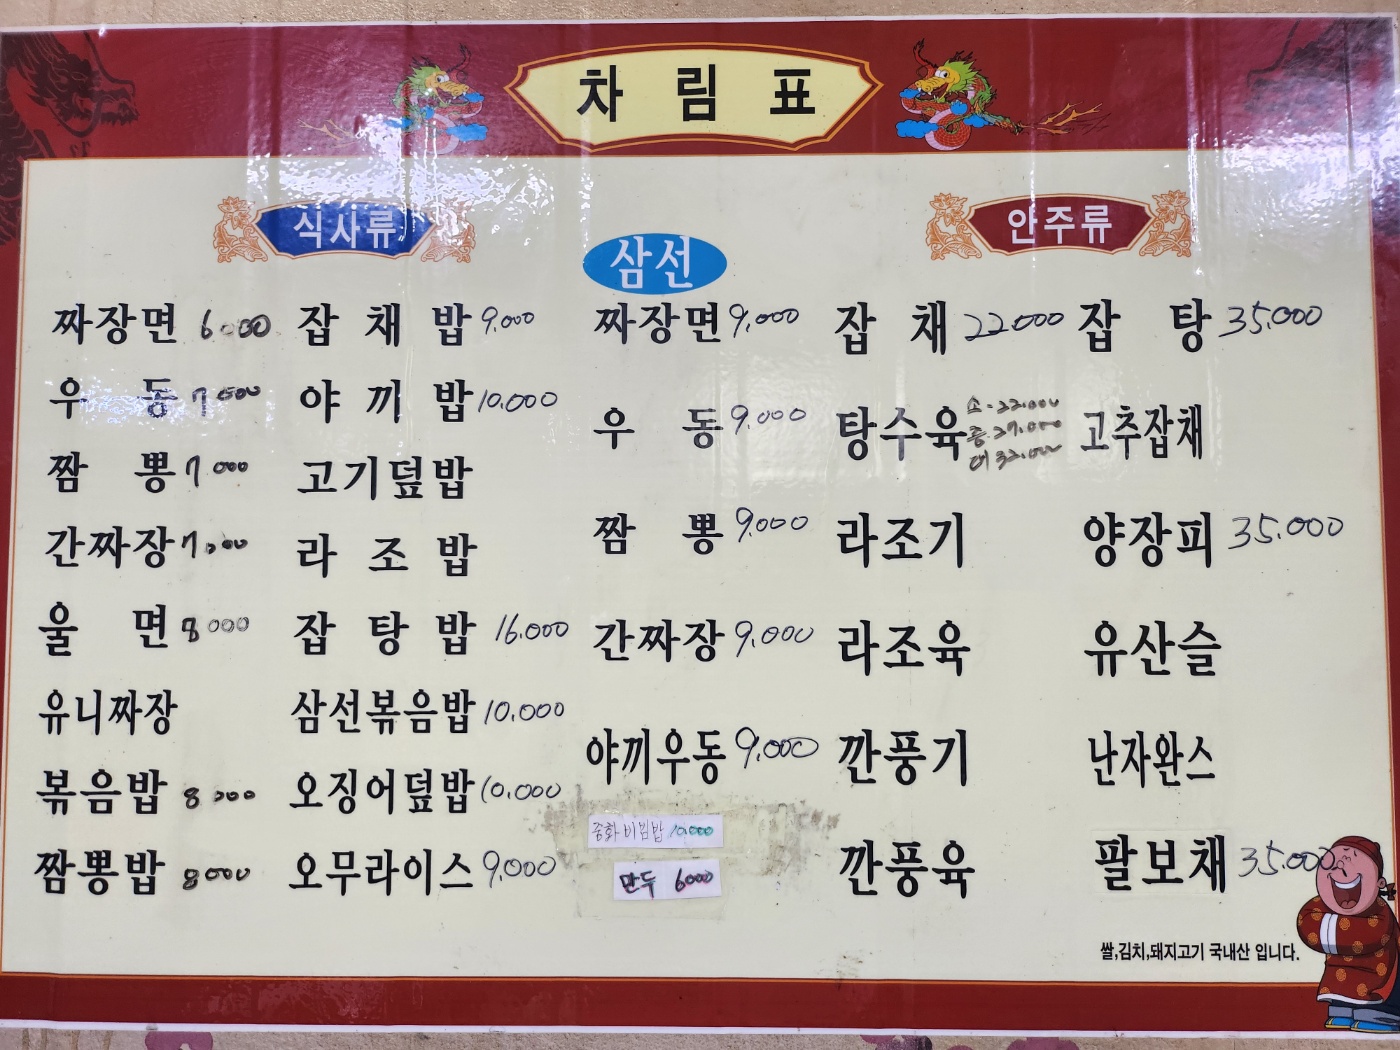 차 림 표
식사류
짜장면 6000
우 동 7000
짬 뽕 7,000
간짜장 7,000
울 면 8000
유니짜장
볶음밥 8000
짬뽕밥 8000
잡 채 밥 9,000
야 끼 밥 10,000
고기덮밥
라 조 밥
잡 탕 밥 16,000
삼선볶음밥 10,000
오징어덮밥 10,000
오무라이스 9,000
삼선
짜장면 9,000
우 동 9,000
짬 뽕 9,000
간짜장 9,000
야끼우동 9,000
중화비빔밥 10,000
만두 6000
안주류
잡 채 22000
탕수육 소-22,000
중-27,000
대 32,000
라조기
라조육
깐풍기
깐풍육
잡 탕 35,000
고추잡채
양장피 35,000
유산슬
난자완스
팔보채 35,000
쌀,김치,돼지고기 국내산 입니다.